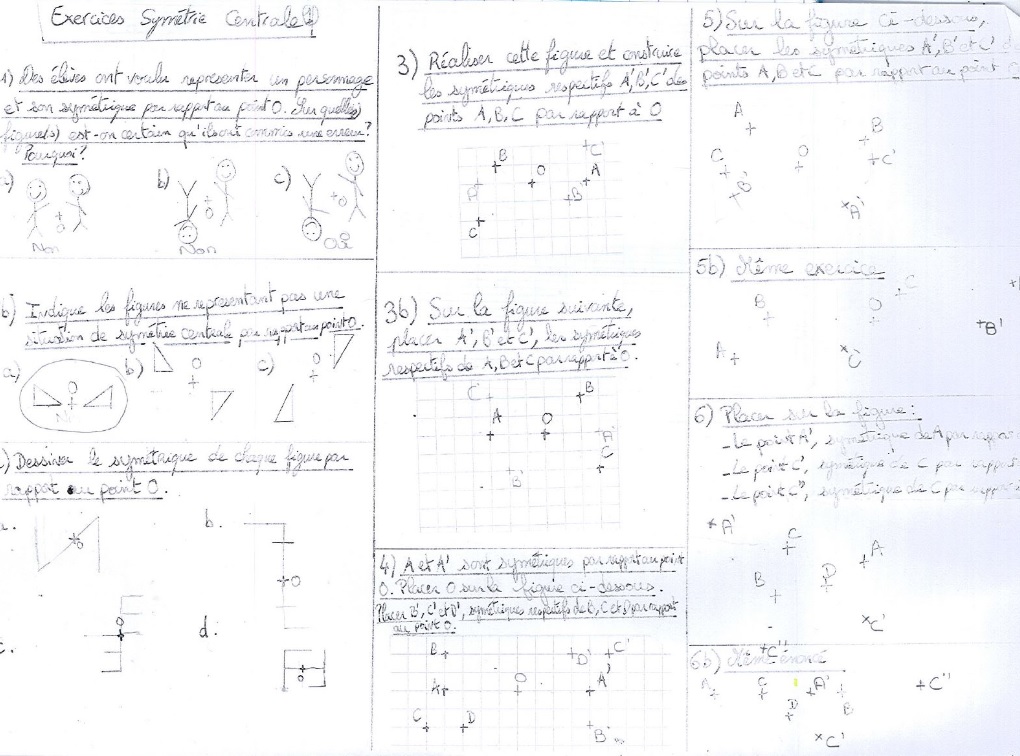 Exercices Symétrie Centrale
1) Des élèves ont voulu représenter un personnage
et son symétrique par rapport au point O. Sur quelle(s)
figure(s) est-on certain qu'ils ont commis une erreur?
Pourquoi?
a) b) c)
O O O
Non Non Oui
b) Indique les figures ne représentant pas une
situation de symétrie centrale par rapport au point O.
a) b) c)
O O O
) Dessiner le symétrique de chaque figure par
rapport au point O.
b.
O O
c. d.
O O
3) Réaliser cette figure et construire
les symétriques respectifs A', B', C' des
points A, B, C par rapport à O
B C'
O A
A' B'
C
3b) Sur la figure suivante,
placer A', B' et C', les symétriques
respectifs de A, B et C par rapport à O.
C' B
A O
A'
C
B'
4) A et A' sont symétriques par rapport au point
O. Placer O sur la figure ci-dessous.
Placer B', C' et D', symétriques respectifs de B, C et D par rapport
au point O.
B D' C'
A O A'
C D
B'
5) Sur la figure ci-dessous,
placer les symétriques A', B' et C' de
points A, B et C par rapport au point O
A B
C O C'
B'
A'
5b) Même exercice
B O C
B'
A C'
6) Placer sur la figure:
- Le point A', symétrique de A par rapport
- Le point C', symétrique de C par rapport
- Le point C", symétrique de C par rapport
A' C A
B D
C'
C"
6b) Même énoncé
A C A' C"
D B
C'